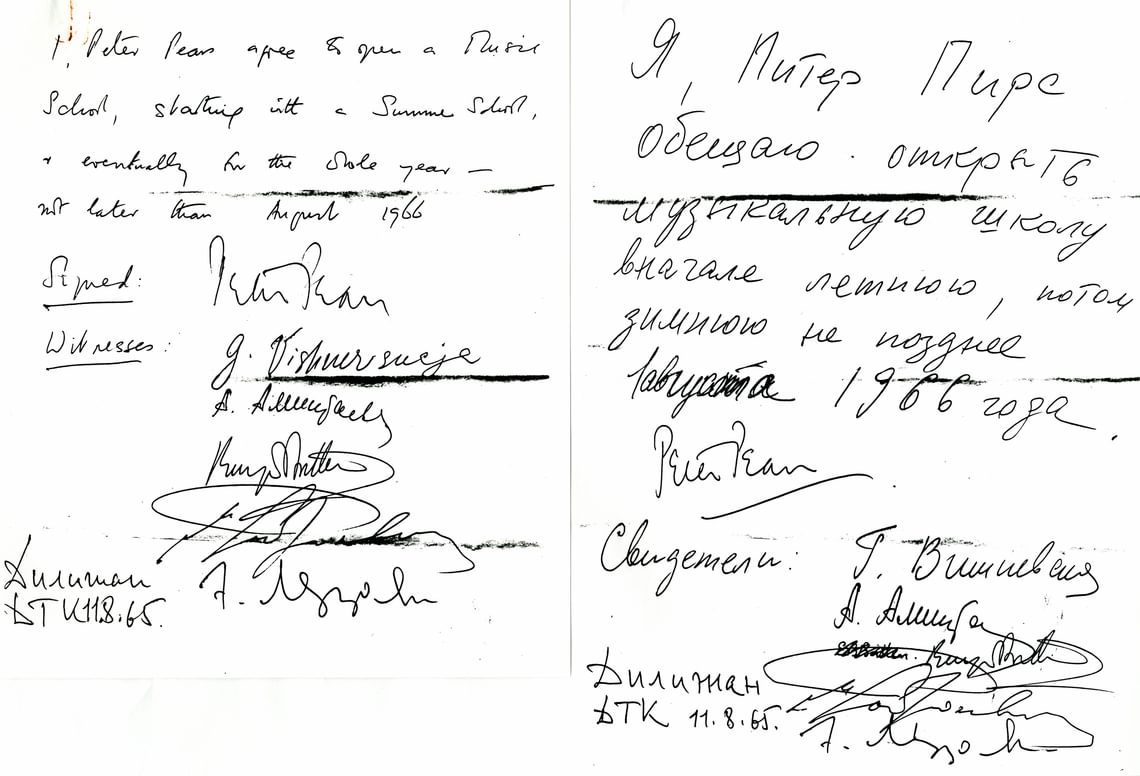 I, Peter Pears agree to open a Music
School, starting with a Summer School,
& eventually for the whole year —
not later than August 1966
Signed: Peter Pears
Witnesses: G. Vishnevskaja
А. Аминбаева
Benj Britten
Дилижан
ДТК 11.8.65.
Я, Питер Пирс
обещаю открыть
музыкальную школу
вначале летнюю, потом
зимнюю не позднее
1 августа 1966 года.
Peter Pears
Свидетели: Г. Вишневская
Benj Britten
Дилижан
ДТК 11.8.65.